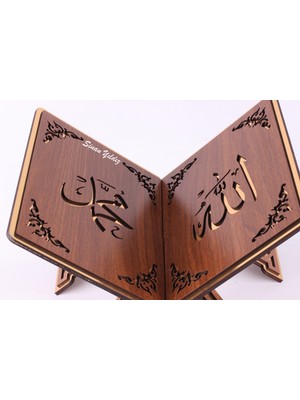 Sinan Yıldız
محمد
الله